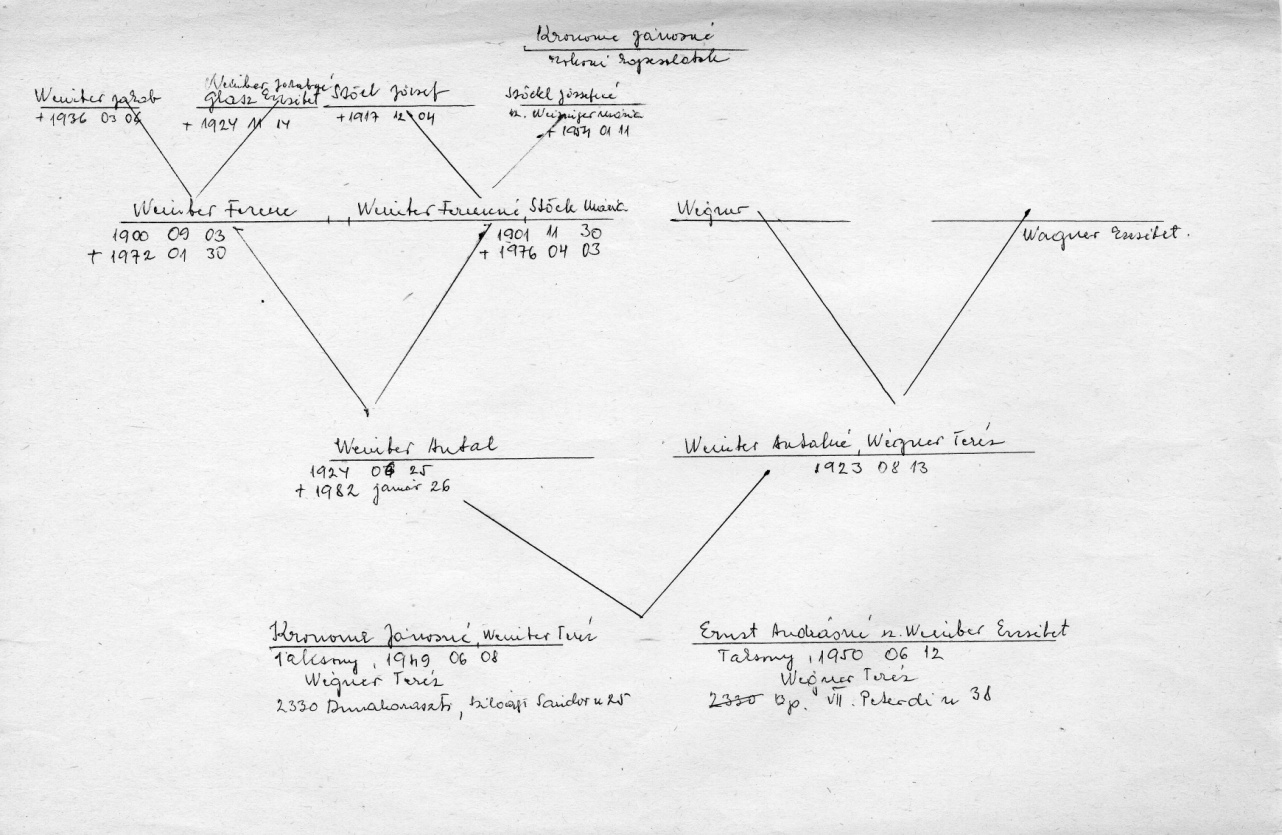 Kronome Jánosné
rokoni kapcsolatok
Weinber Jakab
+ 1936 03 06
Weinber Jakabné
Glasz Erzsébet
+ 1924 11 14
Stöckl József
+ 1917 12 04
Stöckl Józsefné
sz. Mária
+ 1954 01 11
Weinber Ferenc
1900 09 03
+ 1972 01 30
Weinber Ferencné, Stöckl Mária
1901 11 30
+ 1976 04 03
Wégner
Wagner Erzsébet.
Weinber Antal
1924 06 25
+ 1982 január 26
Weinber Antalné, Wégner Teréz
1923 08 13
Kronome Jánosné, Weinber Teréz
Taksony, 1949 06 08
Wégner Teréz
2330 Dunaharaszti, Szilágyi Sándor u 25
Ernst Andrásné sz. Weinber Erzsébet
Taksony, 1950 06 12
Wégner Teréz
2330 Bp. VII. Peterdi u 38